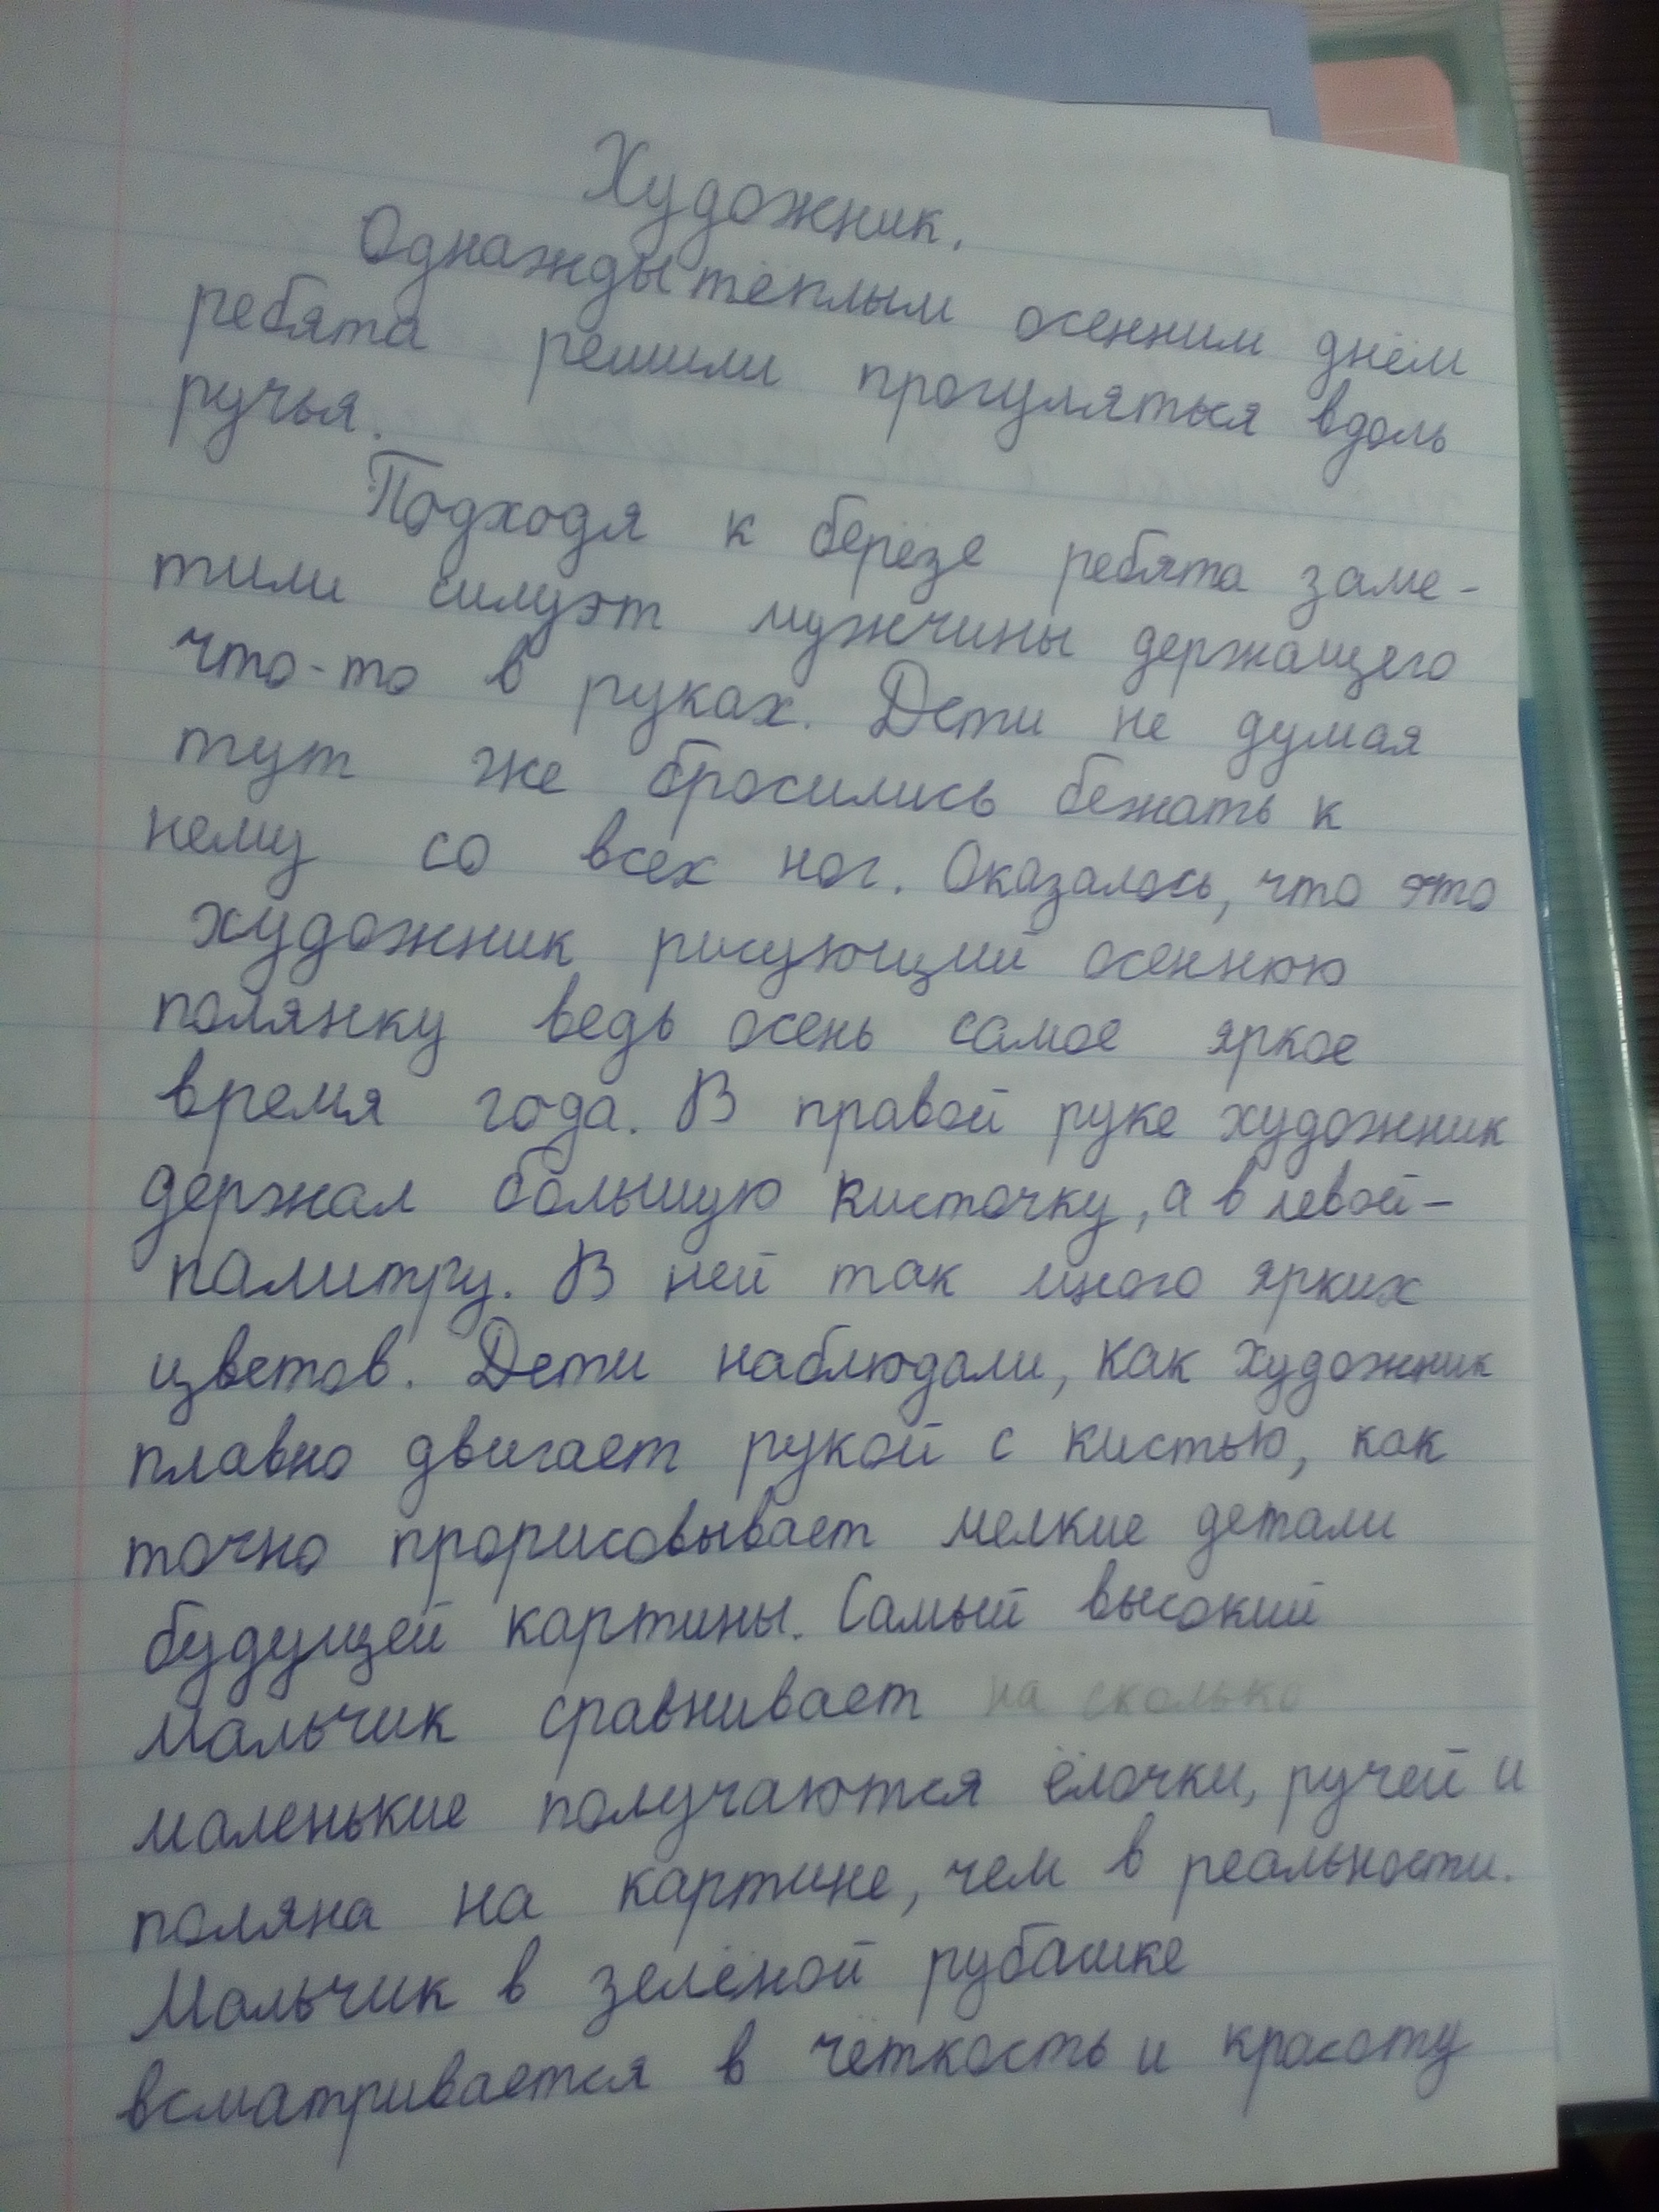 Художник.
Однажды тёплым осенним днём
ребята решили прогуляться вдоль
ручья.
Подходя к берёзе ребята заме-
тили силуэт мужчины держащего
что-то в руках. Дети не думая
тут же бросились бежать к
нему со всех ног. Оказалось, что это
художник рисующий осеннюю
полянку ведь осень самое яркое
время года. В правой руке художник
держал большую кисточку, а в левой-
палитру. В ней так много ярких
цветов. Дети наблюдали, как художник
плавно двигает рукой с кистью, как
точно прорисовывает мелкие детали
будущей картины. Самый высокий
мальчик сравнивает на сколько
маленькие получаются ёлочки, ручей и
поляна на картине, чем в реальности.
Мальчик в зелёной рубашке
всматривается в чёткость и красоту